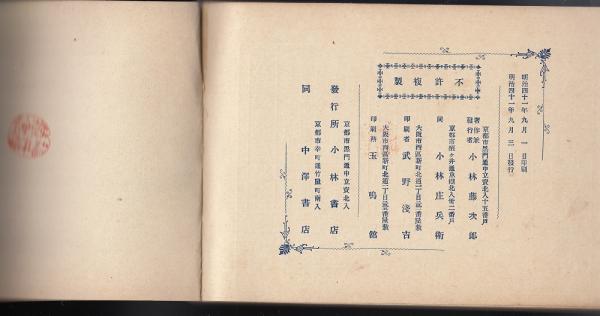 明治四十一年九月一日印刷
明治四十一年九月三日發行
不許複製
京都市黒門通中立賣北入十五番戸
著作兼
發行者
小林藤次郎
同
小林庄兵衛
大阪市西區新町北通一丁目
印刷者
武野淺吉
大阪市西區新町北通一丁目
印刷所
玉鳴館
京都市黒門通中立賣北入
發行所
小林書店
京都市寺町通竹屋町南入
同
中澤書店